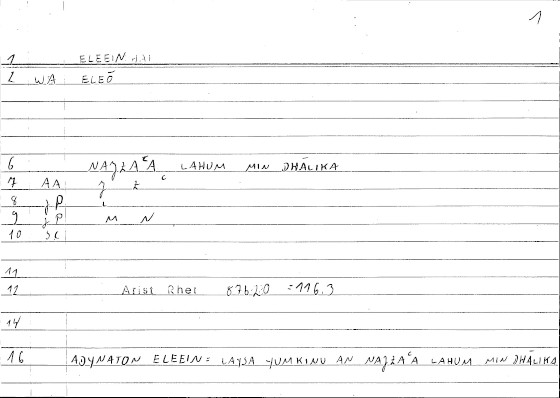 1
1 ELEEIN
2 WA ELEŌ
6 NAJZAʿA LAHUM MIN DHĀLIKA
7 AA J Z ʿ
8 JP I
9 JP M N
10
11
12 Arist Rhet =116.3
14
16 ADYNATON ELEEIN= LAYSA YUMKINU AN NAJZAʿA LAHUM MIN DHĀLIKA